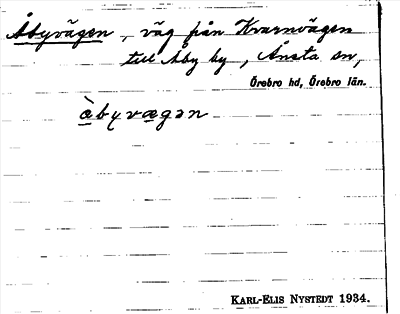 Åbyvägen, väg från Kvarnvägen
till Åby by, Ånsta sn,
Örebro hd, Örebro län.
å̀byvägən
KARL-ELIS NYSTEDT 1934.